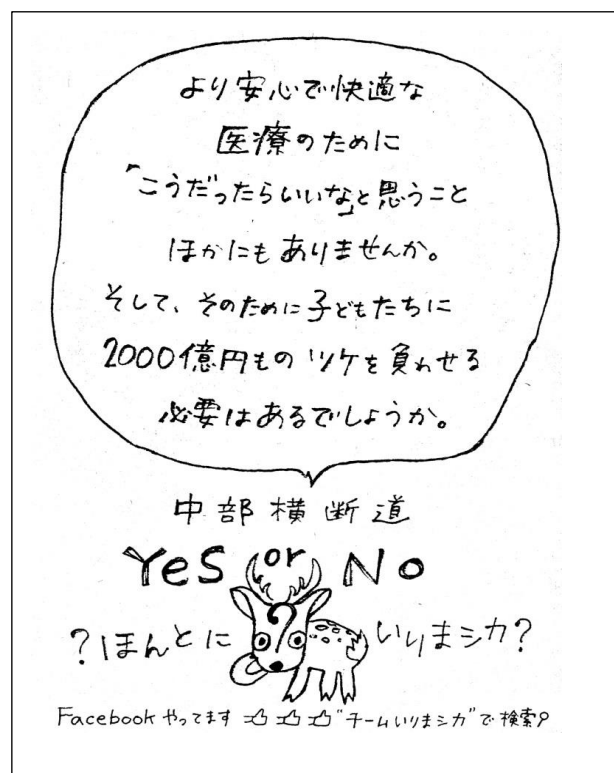 より安心で快適な
医療のために
「こうだったらいいな」と思うこと
ほかにもありませんか。
そして、そのために子どもたちに
2000億円ものツケを負わせる
必要はあるでしょうか。
中部横断道
Yes or No
?
?ほんとに いりまシカ?
Facebookやってます "チームいりまシカ"で検索